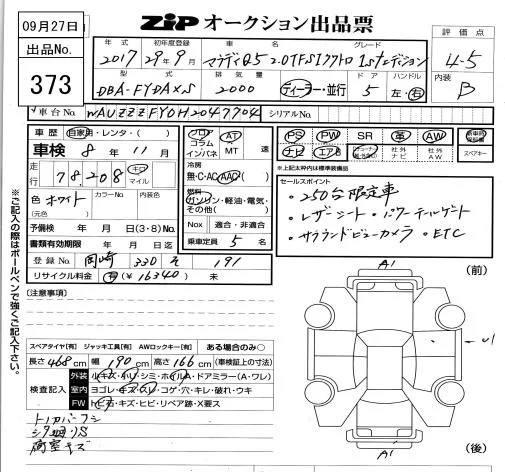 09月27日
ZIP オークション出品票
出品No.
373
年式 初年度登録 車名 グレード
2017 29年9月 アウディQ5 2.0TFSIクワトロ 1stエディション
評価点
4-5
型式 排気量 ドア ハンドル
DBA-FYDAXS 2000 ディーラー・並行 5 左・右
内装
B
車台No. WAUZZZFY0H2047704 シリアルNo.
車歴 自家用・レンタ・( )
車検 8年11月
走行 78,208 キロ マイル
色 ホワイト カラーNo. 内装色
(元色)
予備検 年 月 日(3・8)No.
書類有効期限 年 月 日迄
登録No. 岡崎 330 そ 191
リサイクル料金 有(¥16340) 未
フロア コラム インパネ
AT MT 速
冷房
無・C・AC(AAC)
燃料
ガソリン・軽油・電気・その他( )
Nox 適合・非適合
乗車定員 5 名
PS PW SR 革 AW
ナビ エアB 社外ナビ 社外AW スペアキー
※上記太枠内は標準装備品
セールスポイント
・250台限定車
・レザーシート・パワーテールゲート
・サラウンドビューカメラ・ETC
※ご記入の際はボールペンで強くご記入下さい。
[注意事項]
スペアタイヤ[有] ジャッキ工具[有] AWロックキー[有] ある場合のみ○
長さ468cm 幅190cm 高さ166cm (車検証上の寸法)
検査記入
外装 ルキズ・ハリ・シミ・ホイル・ドアミラー(A・ワレ)
室内 ヨゴレ・キズ・スレ・コゲ・穴・キレ・破れ・ウキ
FW トビ石・キズ・ヒビ・リペア跡・X要ス
荷室キズ
A1
(前)
U1
A1
(後)